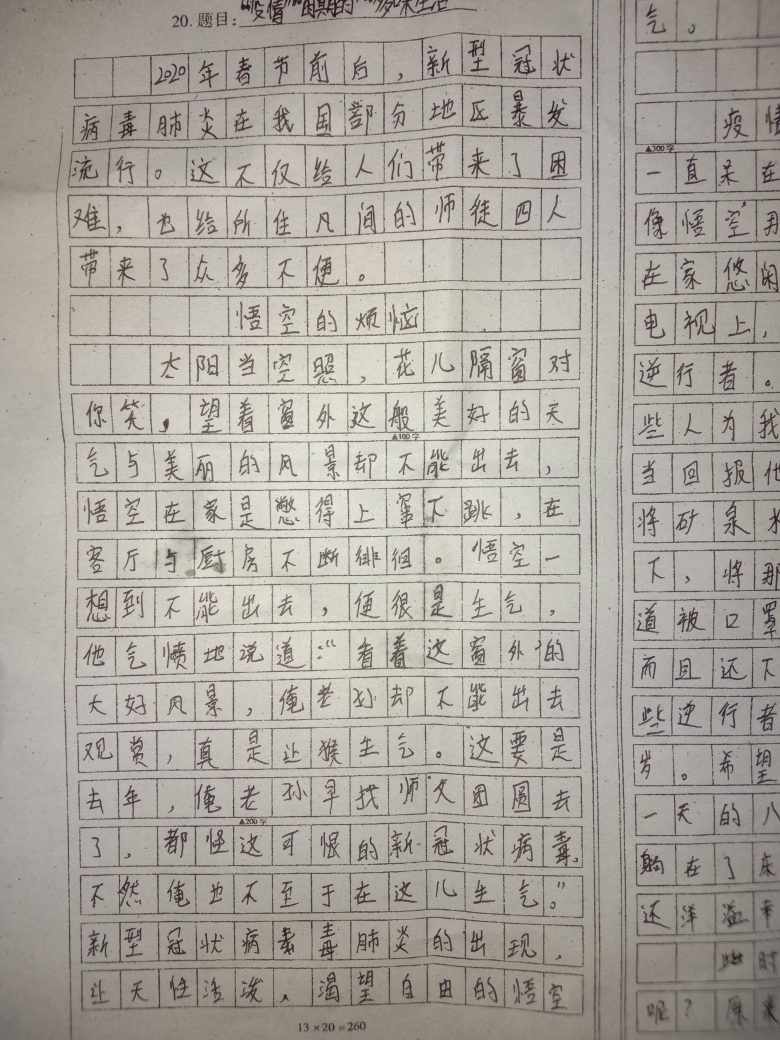 20. 题目：“疫情”的
2020年春节前后，新型冠状
病毒肺炎在我国部分地区暴发
流行。这不仅给人们带来了困
难，也给所住凡间的师徒四人
带来了众多不便。
悟空的烦恼
太阳当空照，花儿隔窗对
你笑，望着窗外这般美好的天
▲100字
气与美丽的风景却不能出去，
悟空在家是憋得上窜下跳，在
客厅与厨房不断徘徊。悟空一
想到不能出去，便很是生气，
他气愤地说道：“看着这窗外的
大好风景，俺老孙却不能出去
观赏，真是让猴生气。这要是
去年，俺老孙早找师父团圆去
▲200字
了，都怪这可恨的新冠状病毒，
不然俺也不至于在这儿生气。”
新型冠状病毒肺炎的出现，
让天性活泼，渴望自由的悟空
13×20=260
气。
疫情
▲300字
一直呆在
像悟空
在家悠闲
电视上，
逆行者。
些人为我
当回报他
将矿泉水
下，将那
道被口罩
而且还下
些逆行者
岁。希望
一天的八
躺在了床
还洋溢幸
此时
呢？原来